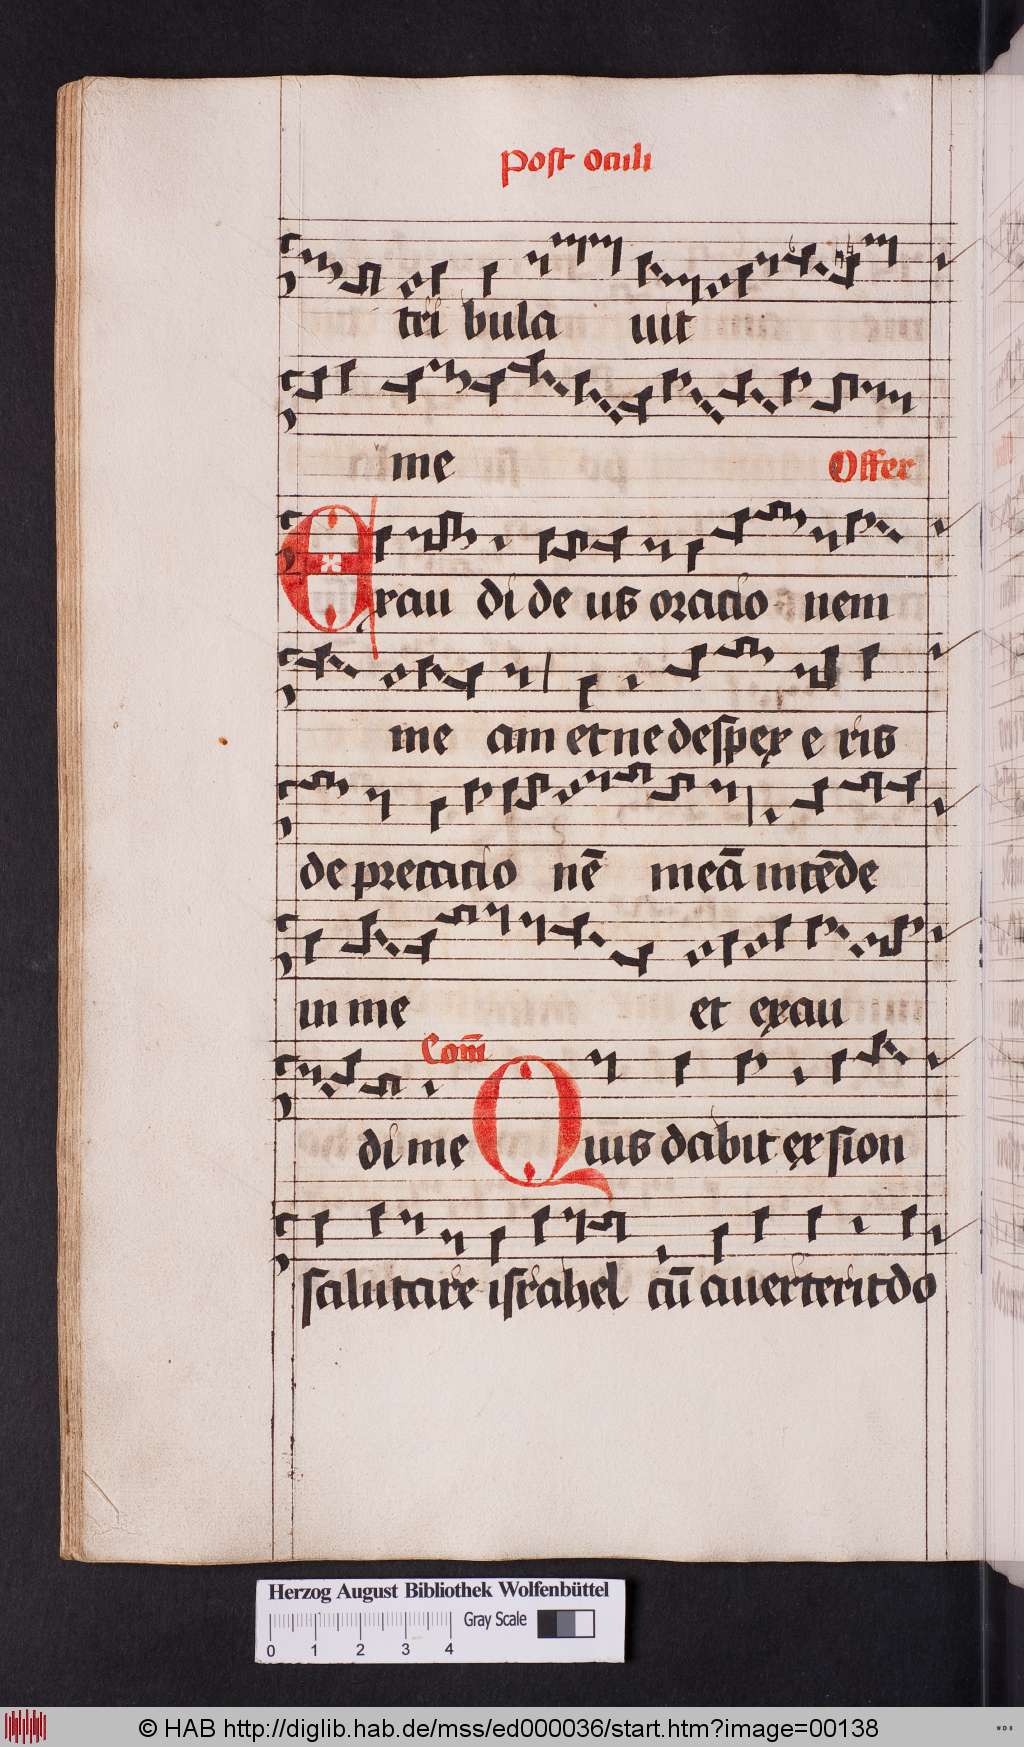 post oculi
tri bula uit
me Offer
Exau di de us oratio nem
me am et ne despex e ris
de precatio nē meā intēde
in me et exau
Com̄
di me Quis dabit ex sion
salutare israhel cū auerterit do
Herzog August Bibliothek Wolfenbüttel
Gray Scale
0 1 2 3 4
© HAB http://diglib.hab.de/mss/ed000036/start.htm?image=00138
WDB